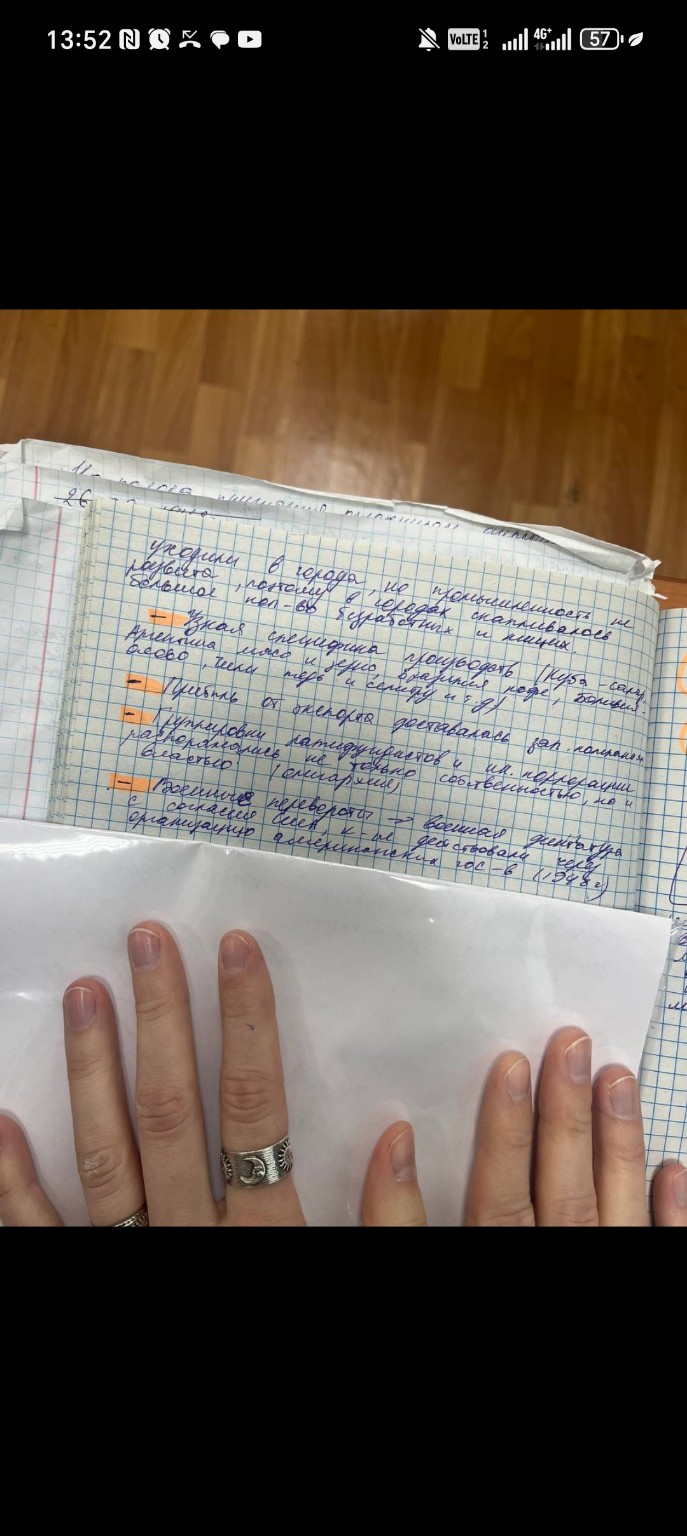 13:52
VoLTE 1 2 4G+ 57
26
уходили в города, но промышленность не
развита, поэтому в городах скапливалось
большое кол-во безработных и нищих.
- Узкая специфика производств (Куба - сахар,
Аргентина мясо и зерно, Бразилия кофе, Боливия -
олово, Чили медь и селитру и т.д)
- Прибыль от экспорта доставалась зап. компаниям
- Группировки латифундистов и ин. корпорации
распоряжались не только собственностью, но и
властью (олигархия)
- Военные перевороты → военная диктатура
с согласия США, к-ые действовали через
организацию американских гос-в (1948 г)